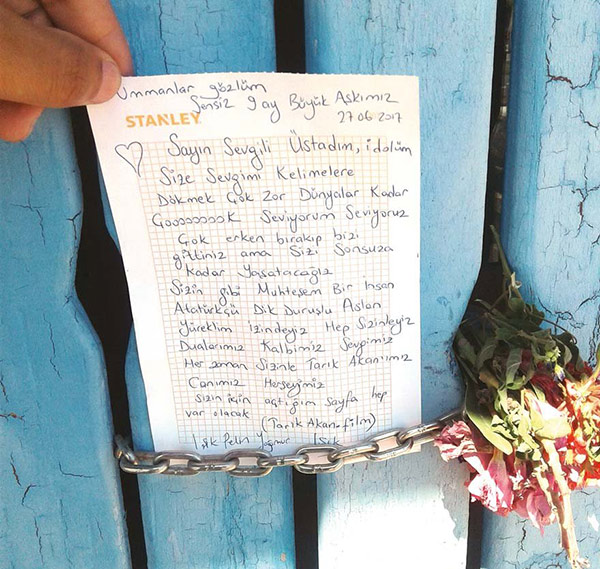 Ummanlar gözlüm
Sensiz 9 ay Büyük Aşkımız
27.06.2017
STANLEY
Sayın Sevgili Üstadım, idolüm
Size Sevgimi Kelimelere
Dökmek Çok Zor Dünyalar Kadar
Çooooooook Seviyorum Seviyoruz
Çok erken bırakıp bizi
gittiniz ama Sizi Sonsuza
Kadar Yaşatacağız
Sizin gibi Muhteşem Bir İnsan
Atatürkçü Dik Duruşlu Aslan
Yüreklim izindeyiz Hep Sizinleyiz
Dualarımız Kalbimiz Sevgimiz
Her zaman Sizinle Tarık Akan'ımız
Canımız Herşeyimiz
Sizin için açtığım sayfa hep
var olacak (Tarık Akan.film)
Işık Pelin Yağmur Işık